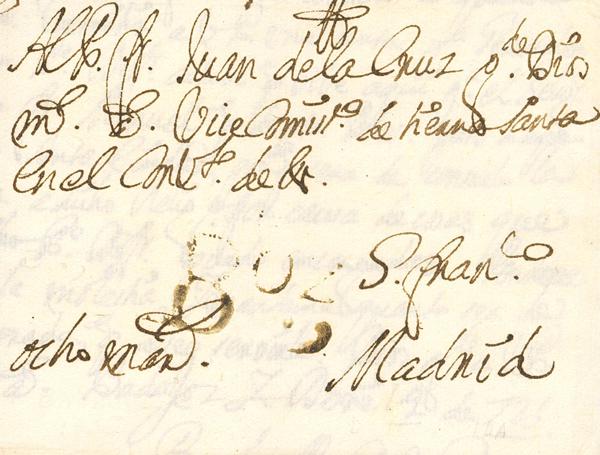 Al P. fr. Juan de la Cruz q.e Dios
m.s a.s Vice Comis.o de tierra santa
en el Conv.to de N.
S. Fran.co
ocho mar.s
Madrid